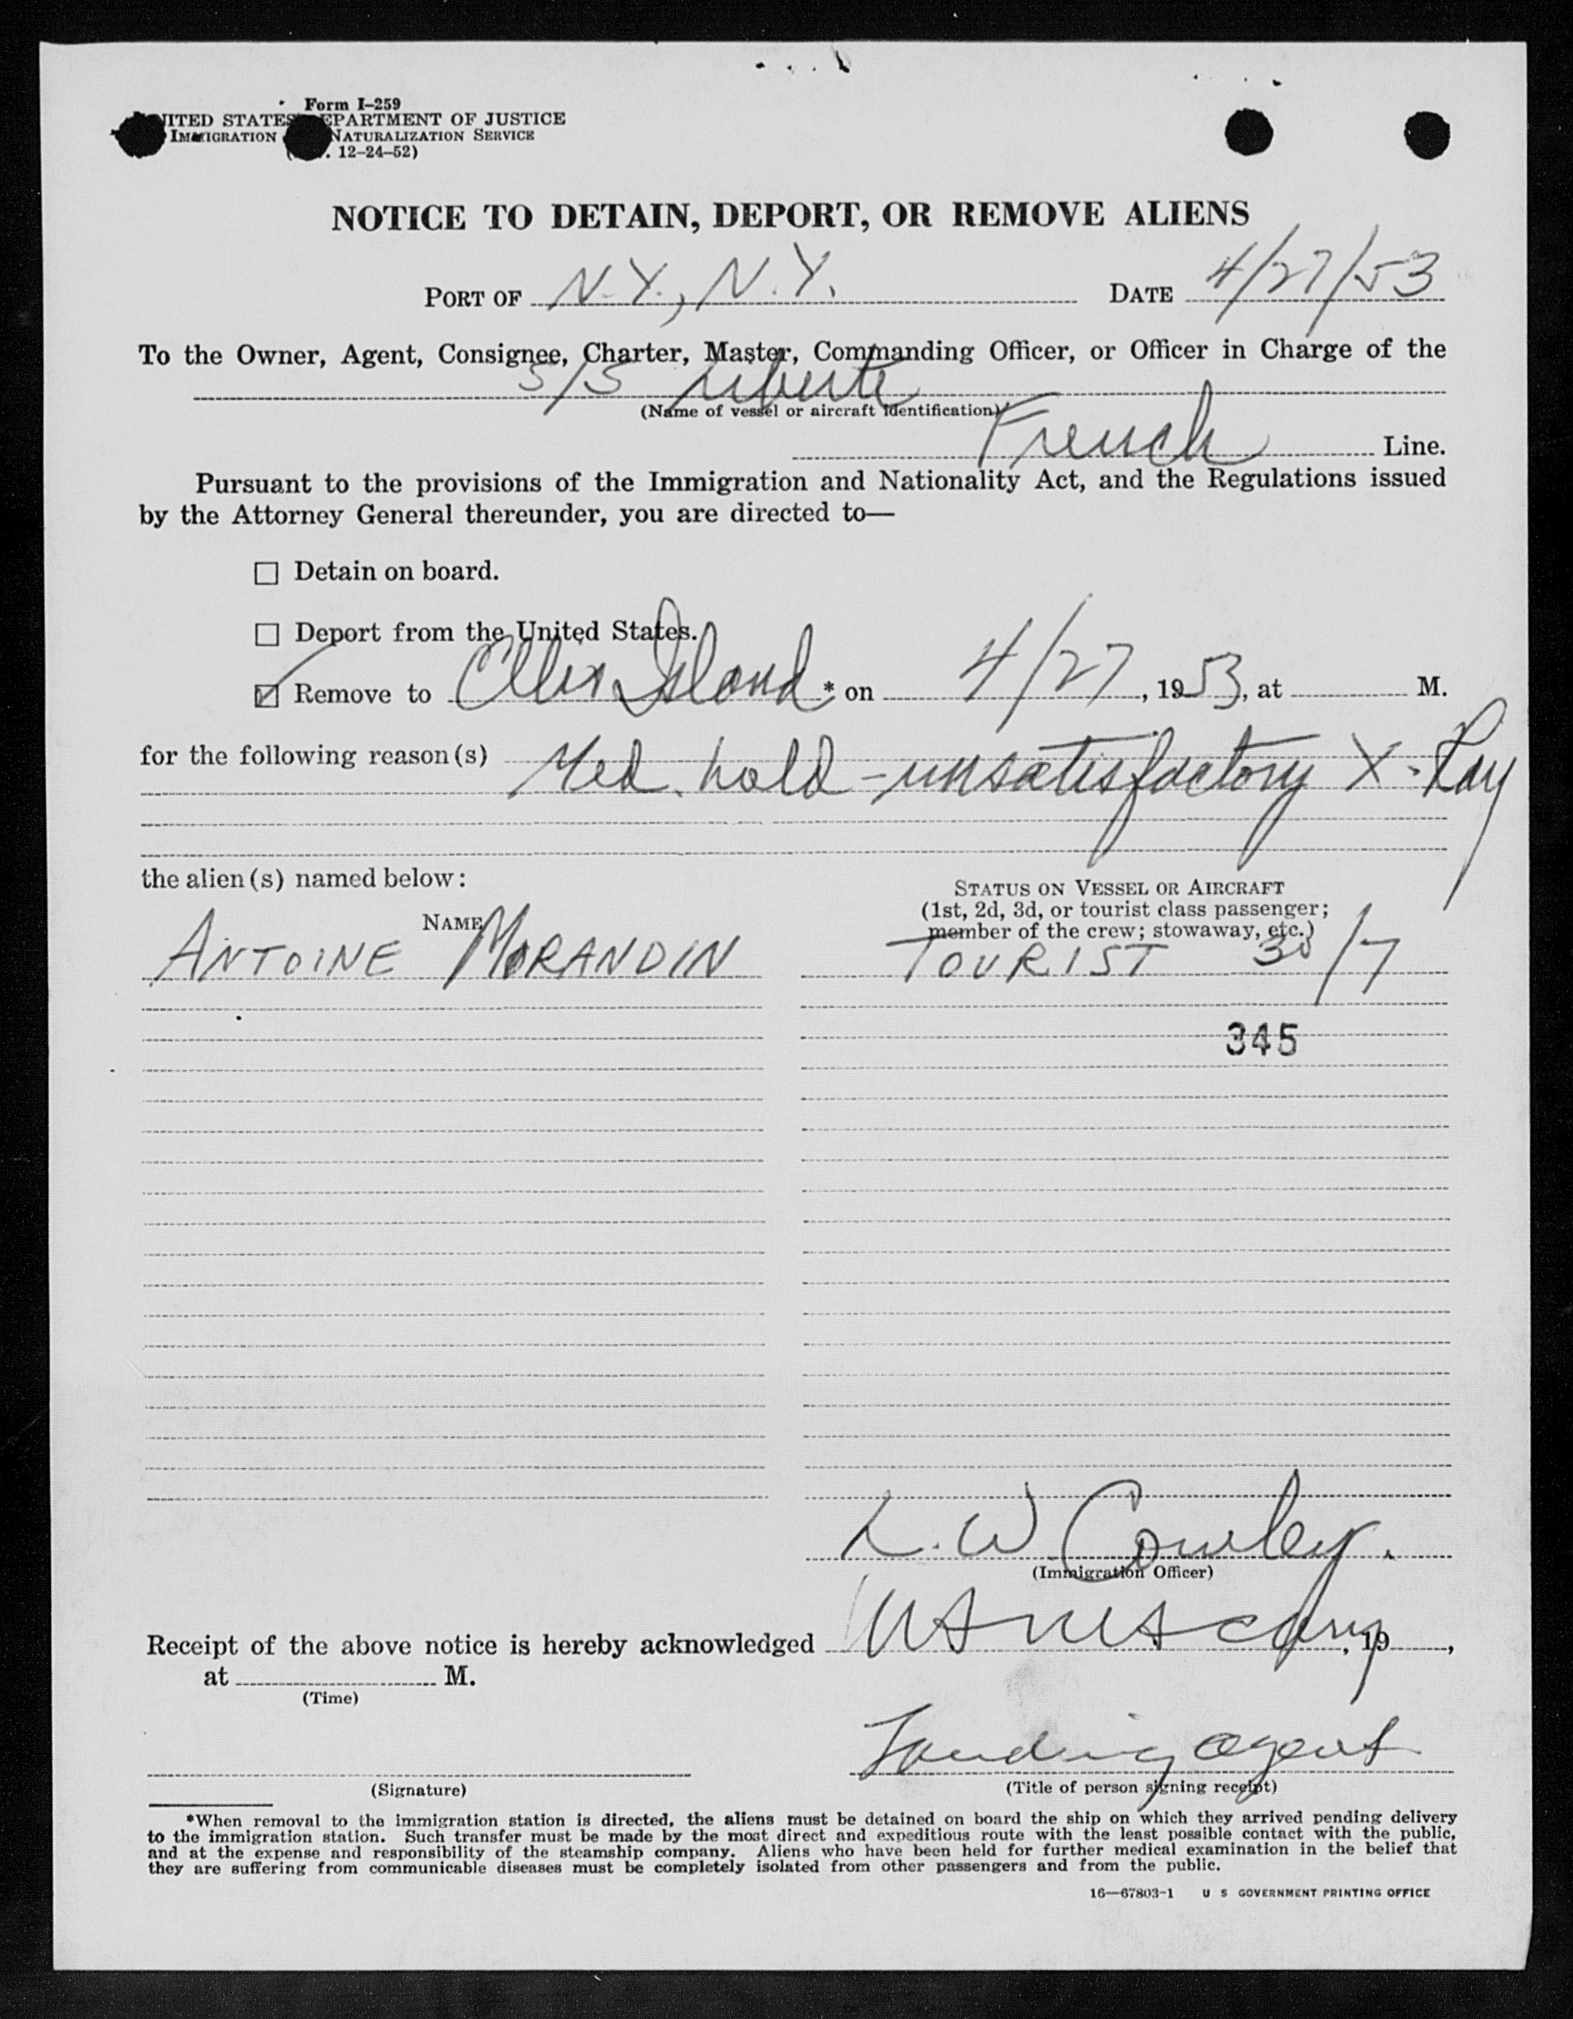 Form I-259
ITED STATES EPARTMENT OF JUSTICE
IMMIGRATION NATURALIZATION SERVICE
. 12-24-52)
NOTICE TO DETAIN, DEPORT, OR REMOVE ALIENS
PORT OF N.Y., N.Y. DATE 4/27/53
To the Owner, Agent, Consignee, Charter, Master, Commanding Officer, or Officer in Charge of the
S/S Liberte
(Name of vessel or aircraft identification)
French Line.
Pursuant to the provisions of the Immigration and Nationality Act, and the Regulations issued
by the Attorney General thereunder, you are directed to—
☐ Detain on board.
☐ Deport from the United States.
☑ Remove to Ellis Island * on 4/27, 1953, at M.
for the following reason(s) Med. hold - unsatisfactory X-Ray
the alien(s) named below:
STATUS ON VESSEL OR AIRCRAFT
(1st, 2d, 3d, or tourist class passenger;
NAME member of the crew; stowaway, etc.)
ANTOINE MORANDIN TOURIST 30/7
345
L. W. Cowley.
(Immigration Officer)
Receipt of the above notice is hereby acknowledged , 19 ,
at M.
(Time)
Landing agent
(Signature) (Title of person signing receipt)
*When removal to the immigration station is directed, the aliens must be detained on board the ship on which they arrived pending delivery
to the immigration station. Such transfer must be made by the most direct and expeditious route with the least possible contact with the public,
and at the expense and responsibility of the steamship company. Aliens who have been held for further medical examination in the belief that
they are suffering from communicable diseases must be completely isolated from other passengers and from the public.
16—67803-1 U S GOVERNMENT PRINTING OFFICE